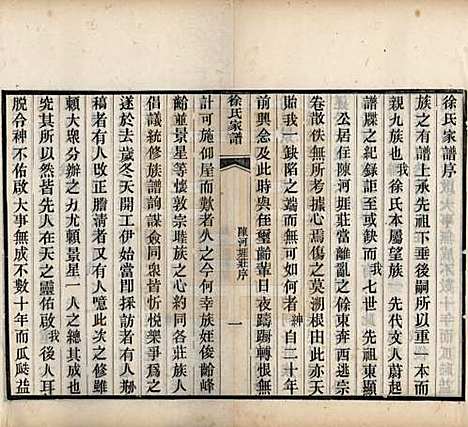 徐氏家譜序
族之有譜上承先祖下啟子嗣所以重一本而
親九族也我徐氏本屬望族 先代文人蔚起
譜牒之紀錄詎至或缺而我七世 先祖東顯
公居住陳河堐莊當離亂之餘東奔西逃宗
卷散佚無所考據心焉傷之莫溯根由此誠
貽我一缺陷之端耳紳自二十年
前興念及此時與侄璽齡輩日夜躊躇轉恨無
計可施仰屋而歎者久之今何幸族姪俊齡峰
齡並景星等懷敦宗睦族之心約同各莊族人
倡議統修族譜詢謀僉同衆皆忻悅樂爭為之
遂於去歲冬天開工伊始當即採訪者有人膳
稿者有人商酌校閱者又有人噫此次修雖
賴大衆分辦之力尤賴景星一人之總其成也
究其所以然皆先人在天之靈佑啟我後人耳
脫令神不佑啟大事無成不數十年而瓜瓞益
徐氏家譜
陳河堐莊序
一